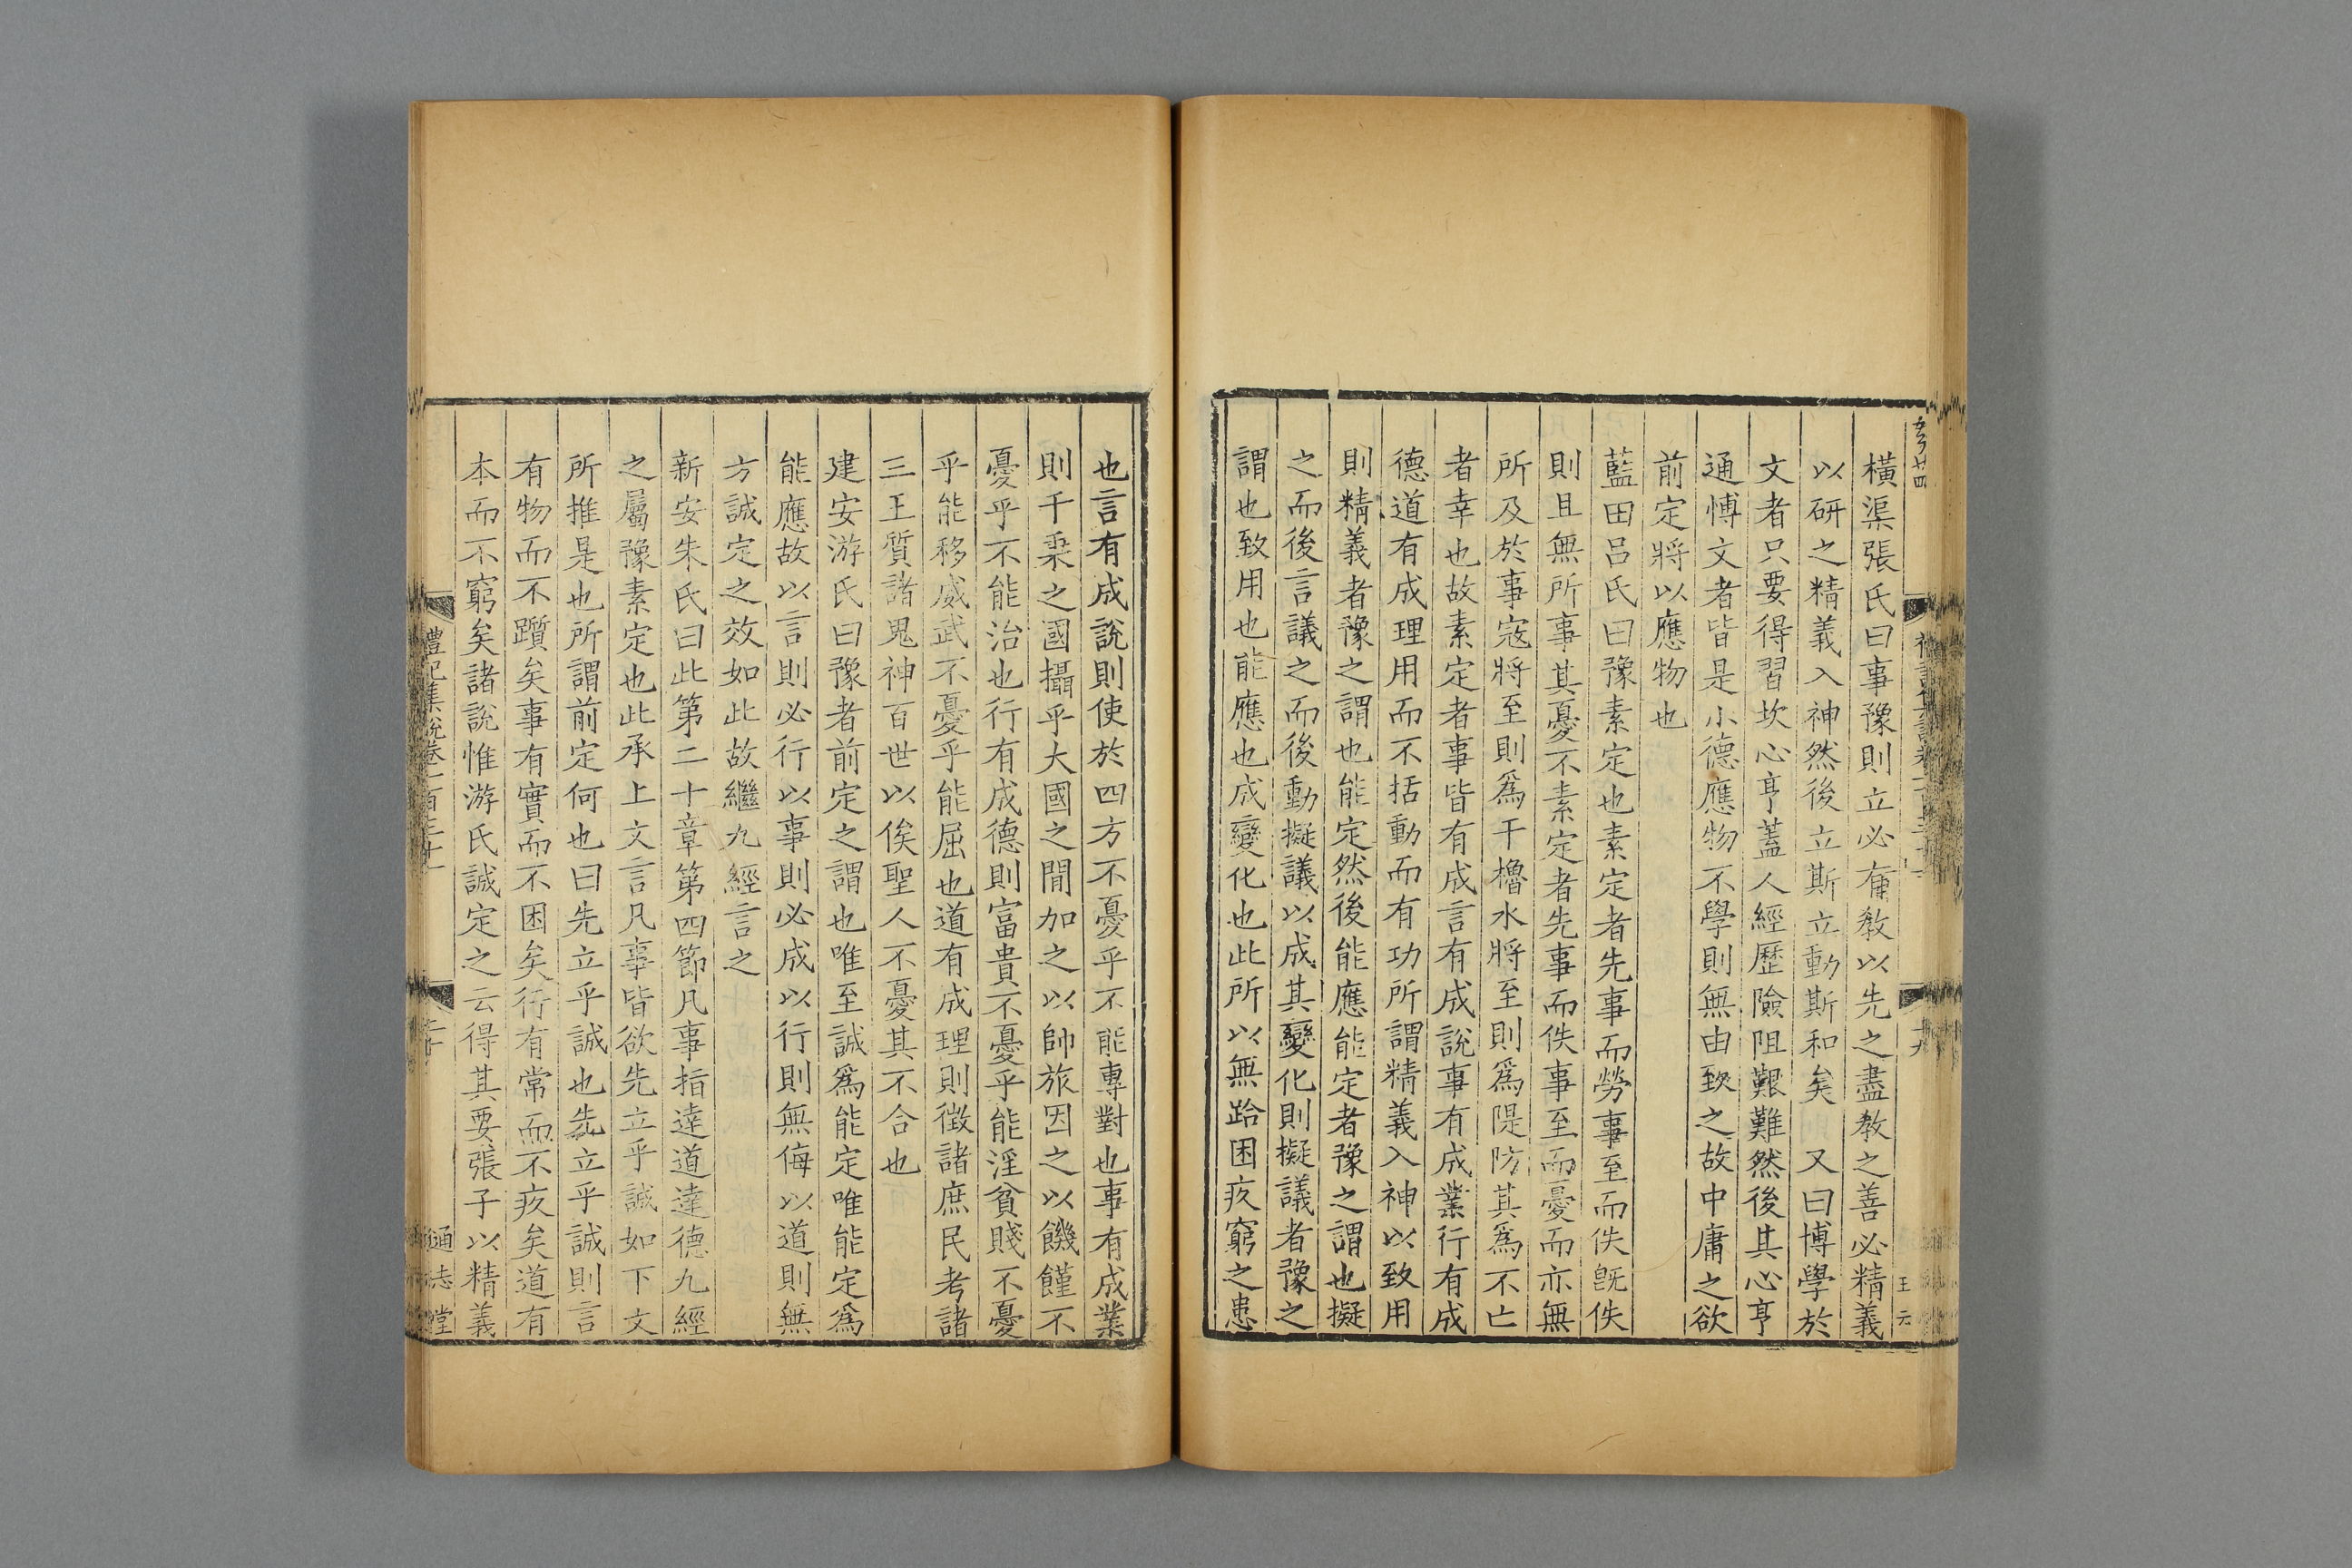 橫渠張氏曰事豫則立必有教以先之盡教之善必精義
以研之精義入神然後立斯立動斯和矣 又曰博學於
文者只要得習坎心亨蓋人經歷險阻艱難然後其心亨
通博文者皆是小德應物不學則無由致之故中庸之欲
前定將以應物也
藍田呂氏曰豫素定也素定者先事而勞事至而佚旣佚
則且無所事其憂不素定者先事而佚事至而憂而亦無
所及於事寇將至則爲干櫓水將至則爲隄防其爲不亡
者幸也故素定者事皆有成言有成說事有成業行有成
德道有成理用而不括動而有功所謂精義入神以致用
則精義者豫之謂也能定然後能應能定者豫之謂也擬
之而後言議之而後動擬議以成其變化則擬議者豫之
謂也致用也能應也成變化也此所以無跲困疚窮之患
也言有成說則使於四方不憂乎不能專對也事有成業
則千乗之國攝乎大國之閒加之以師旅因之以饑饉不
憂乎不能治也行有成德則富貴不憂乎能淫貧賤不憂
乎能移威武不憂乎能屈也道有成理則徵諸庶民考諸
三王質諸鬼神百世以俟聖人不憂其不合也
建安游氏曰豫者前定之謂也唯至誠爲能定唯能定爲
能應故以言則必行以事則必成以行則無悔以道則無
方誠定之效如此故繼九經言之
新安朱氏曰此第二十章第四節凡事指達道達德九經
之屬豫素定也此承上文言凡事皆欲先立乎誠如下文
所推是也所謂前定何也曰先立乎誠也先立乎誠則言
有物而不躓矣事有實而不困矣行有常而不疚矣道有
本而不窮矣諸說惟游氏誠定之云得其要張子以精義
禮記集說卷一百三十一
二十
通志堂